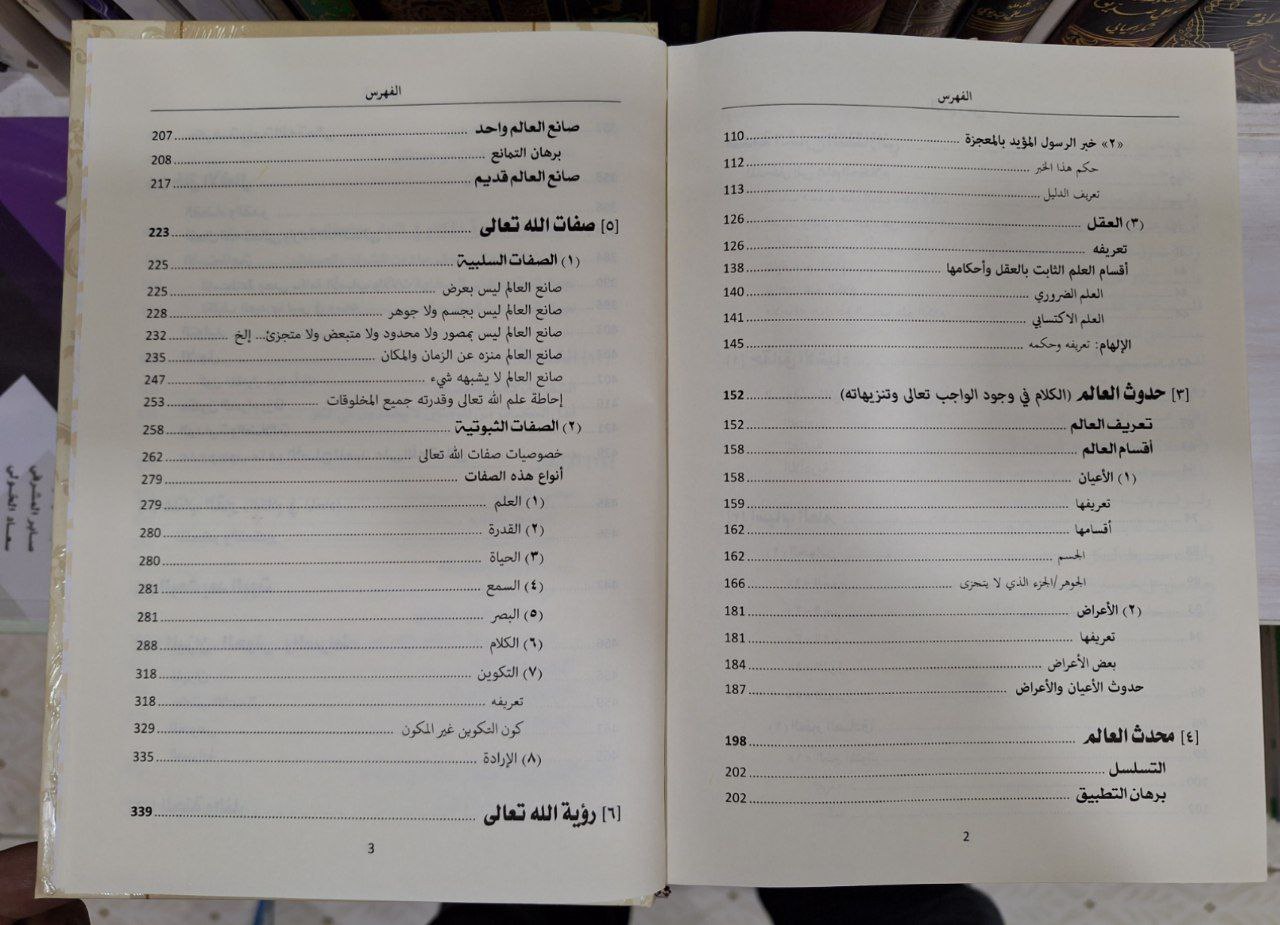 الفهرس
«٢» خبر الرسول المؤيد بالمعجزة ........ 110
حكم هذا الخبر ........ 112
تعريف الدليل ........ 113
(٣) العقل ........ 126
تعريفه ........ 126
أقسام العلم الثابت بالعقل وأحكامها ........ 138
العلم الضروري ........ 140
العلم الاكتسابي ........ 141
الإلهام: تعريفه وحكمه ........ 145
[٣] حدوث العالم (الكلام في وجود الواجب تعالى وتنزيهاته) ........ 152
تعريف العالم ........ 152
أقسام العالم ........ 158
(١) الأعيان ........ 158
تعريفها ........ 159
أقسامها ........ 162
الجسم ........ 162
الجوهر/الجزء الذي لا يتجزى ........ 166
(٢) الأعراض ........ 181
تعريفها ........ 181
بعض الأعراض ........ 184
حدوث الأعيان والأعراض ........ 187
[٤] محدث العالم ........ 198
التسلسل ........ 202
برهان التطبيق ........ 202
2
الفهرس
صانع العالم واحد ........ 207
برهان التمانع ........ 208
صانع العالم قديم ........ 217
[٥] صفات الله تعالى ........ 223
(١) الصفات السلبية ........ 225
صانع العالم ليس بعرض ........ 225
صانع العالم ليس بجسم ولا جوهر ........ 228
صانع العالم ليس بمصور ولا محدود ولا متبعض ولا متجزئ... إلخ ........ 232
صانع العالم منزه عن الزمان والمكان ........ 235
صانع العالم لا يشبهه شيء ........ 247
إحاطة علم الله تعالى وقدرته جميع المخلوقات ........ 253
(٢) الصفات الثبوتية ........ 258
خصوصيات صفات الله تعالى ........ 262
أنواع هذه الصفات ........ 279
(١) العلم ........ 279
(٢) القدرة ........ 280
(٣) الحياة ........ 280
(٤) السمع ........ 281
(٥) البصر ........ 281
(٦) الكلام ........ 288
(٧) التكوين ........ 318
تعريفه ........ 318
كون التكوين غير المكون ........ 329
(٨) الإرادة ........ 335
[٦] رؤية الله تعالى ........ 339
3